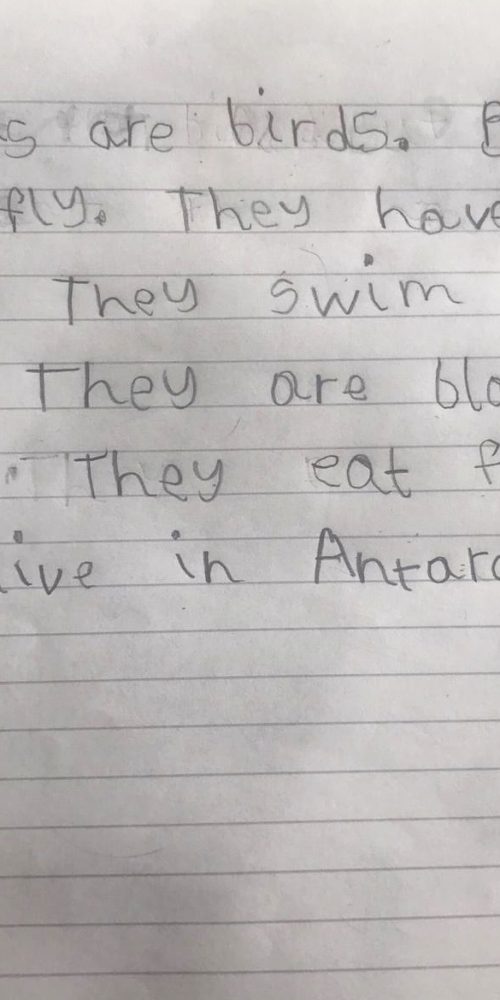 s are birds.
fly. They have
They swim
They are
They eat
ive in Antarc